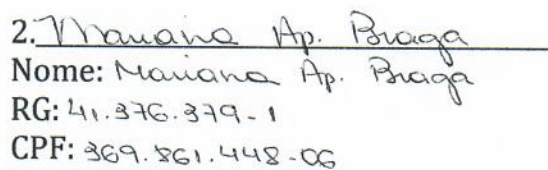 2. Mariana Ap. Braga
Nome: Mariana Ap. Braga
RG: 41.376.379-1
CPF: 369.861.448-06